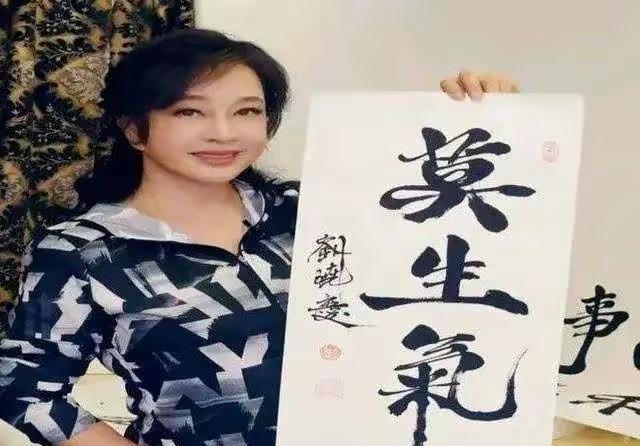 莫生氣
劉曉慶
事
不